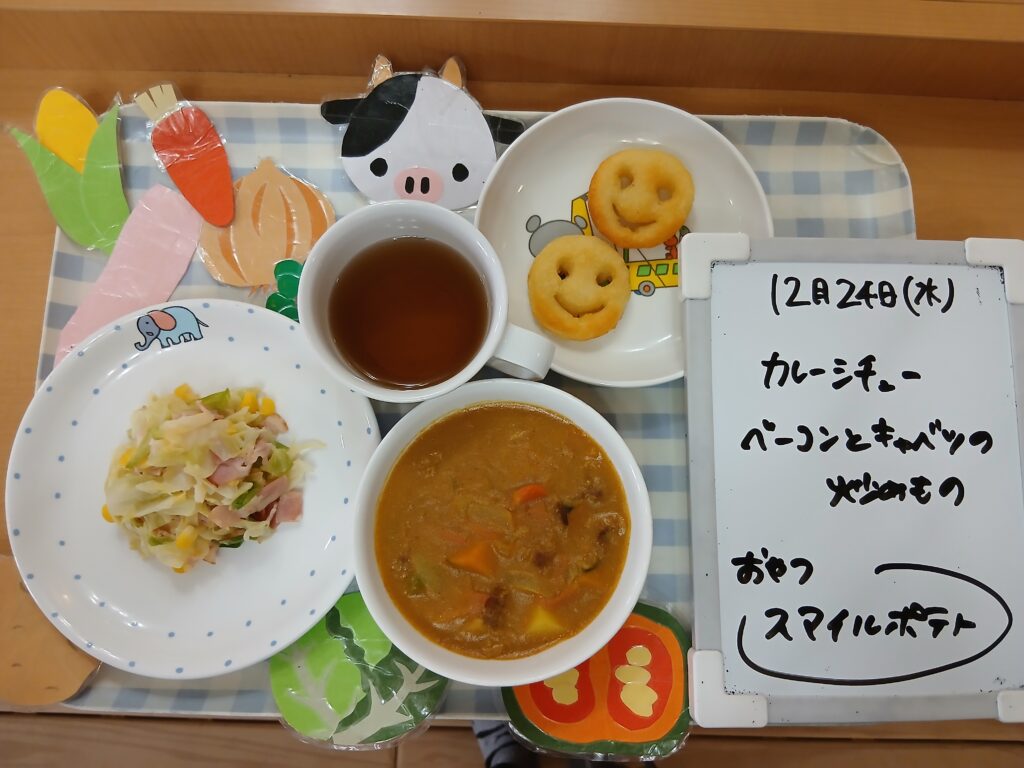 12月24日(水)
カレーシチュー
ベーコンとキャベツの
炒めもの
おやつ
スマイルポテト